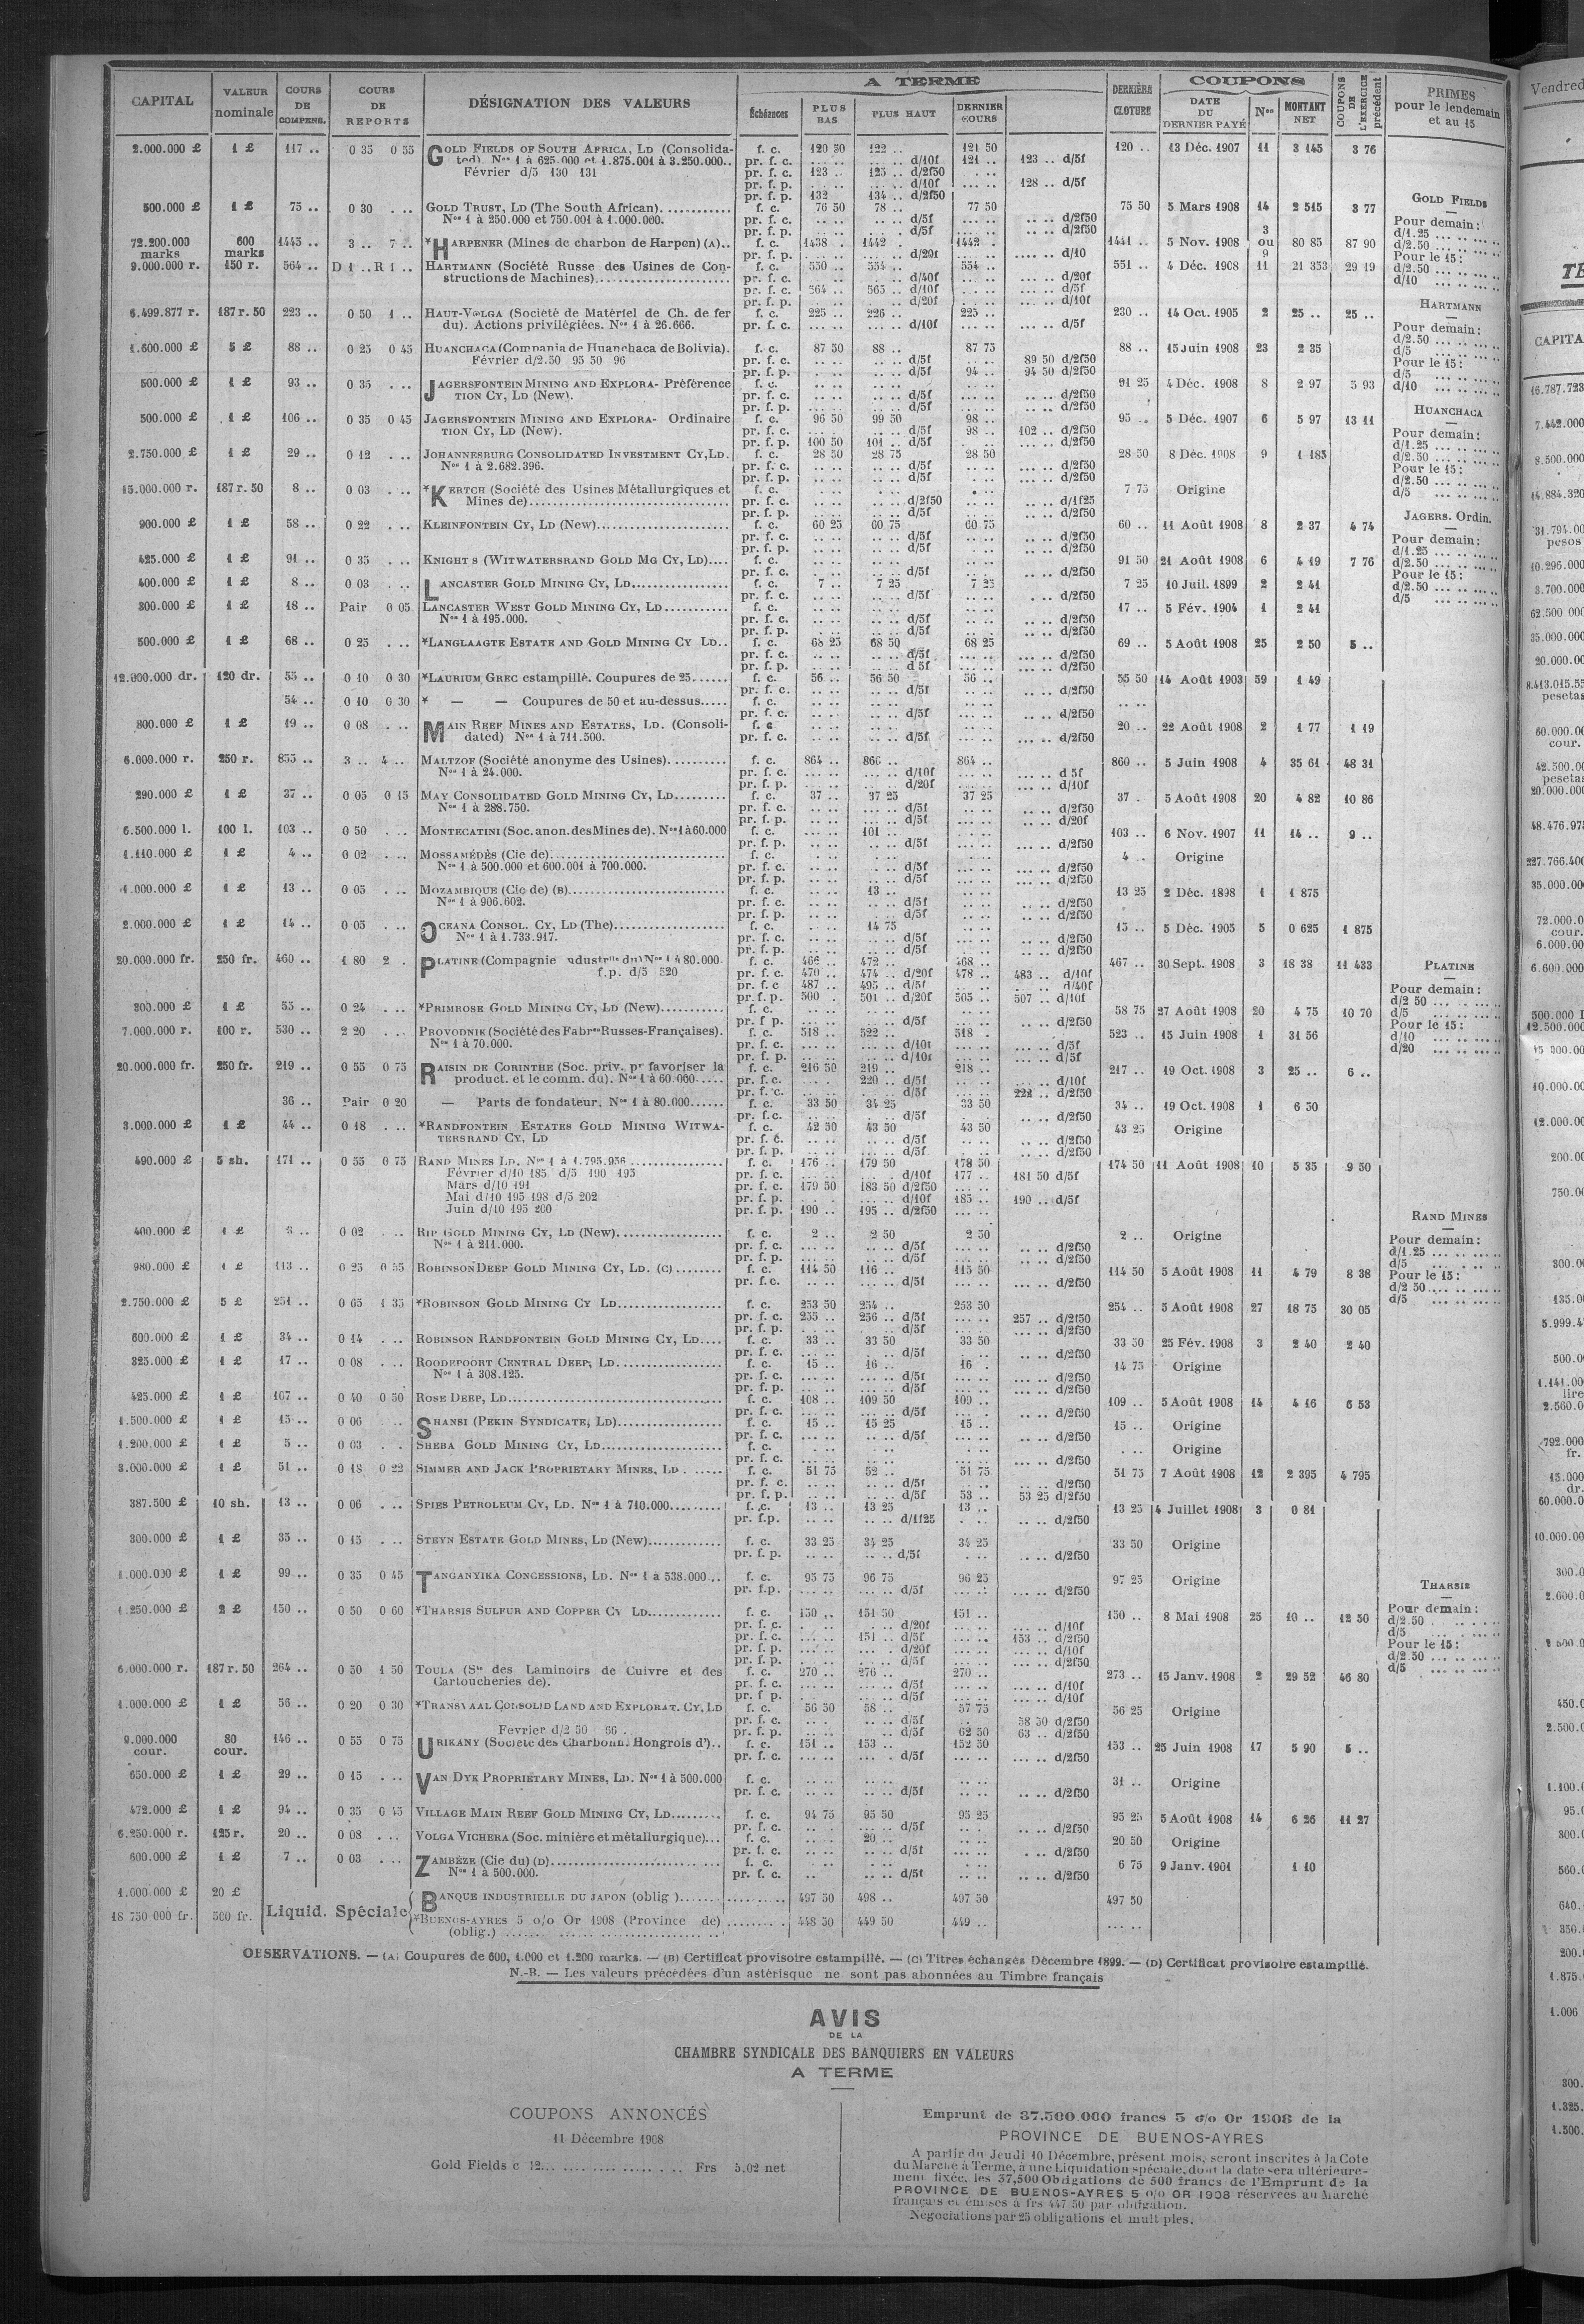 CAPITAL VALEUR nominale COURS DE COMPENS. COURS DE REPORTS DÉSIGNATION DES VALEURS A TERME Échéances PLUS BAS PLUS HAUT DERNIER COURS DERNIÈRE CLOTURE COUPONS DATE DU DERNIER PAYÉ Nos MONTANT NET COUPONS DE L'EXERCICE précédent PRIMES pour le lendemain et au 15
2.000.000 £ 1 £ 117 .. 0 35 0 55 GOLD FIELDS OF SOUTH AFRICA, LD (Consolida- f. c. 120 50 122 .. 121 50 120 .. 13 Déc. 1907 11 3 145 3 76
ted). Nos 1 à 625.000 et 1.875.001 à 3.250.000.. pr. f. c. .... .. .... d/10f 121 .. 123 .. d/5f
Février d/5 130 131 pr. f. c. 123 .. 125 .. d/2f50
pr. f. p. .... d/10f 128 .. d/5f
pr. f. p. 132 134 .. d/2f50
500.000 £ 1 £ 75 .. 0 30 . .. GOLD TRUST, LD (The South African)............ f. c. 76 50 78 .. 77 50 75 50 5 Mars 1908 14 2 515 3 77
Nos 1 à 250.000 et 750.001 à 1.000.000. pr. f. c. d/5f d/2f50
pr. f. p. d/5f d/2f50
72.200.000 marks 600 marks 1445 .. 3 .. 7 .. *HARPENER (Mines de charbon de Harpen) (A).. f. c. 1438 . 1442 . 1442 . 1441 .. 5 Nov. 1908 3 ou 9 80 85 87 90
pr. f. p. d/20f d/10
9.000.000 r. 150 r. 564 .. D 1 .. R 1 .. HARTMANN (Société Russe des Usines de Con- f. c. 550 .. 554 .. 554 .. 551 .. 4 Déc. 1908 11 21 353 29 19
structions de Machines)..................... pr. f. c. d/40f d/20f
pr. f. c. 564 .. 565 .. d/10f d/5f
pr. f. p. d/20f d/10f
6.499.877 r. 187 r. 50 223 .. 0 50 1 .. HAUT-VOLGA (Société de Matériel de Ch. de fer f. c. 225 .. 226 .. 225 .. 230 .. 14 Oct. 1905 2 25 .. 25 ..
du). Actions privilégiées. Nos 1 à 26.666. pr. f. c. d/10f d/5f
1.600.000 £ 5 £ 88 .. 0 25 0 45 HUANCHACA (Compania de Huanchaca de Bolivia). f. c. 87 50 88 .. 87 75 88 .. 15 Juin 1908 23 2 35
Février d/2.50 95 50 96 pr. f. c. d/5f 89 50 d/2f50
pr. f. p. d/5f 94 .. 94 50 d/2f50
500.000 £ 1 £ 93 .. 0 35 . .. JAGERSFONTEIN MINING AND EXPLORA- Préférence f. c. 91 25 4 Déc. 1908 8 2 97 5 93
TION CY, LD (New). pr. f. c. d/5f d/2f50
pr. f. p. d/5f d/2f50
500.000 £ 1 £ 106 .. 0 35 0 45 JAGERSFONTEIN MINING AND EXPLORA- Ordinaire f. c. 96 50 99 50 98 .. 95 .. 5 Déc. 1907 6 5 97 13 11
TION CY, LD (New). pr. f. c. d/5f 98 .. 102 .. d/2f50
pr. f. p. 100 50 101 .. d/5f d/2f50
2.750.000 £ 1 £ 29 .. 0 12 . .. JOHANNESBURG CONSOLIDATED INVESTMENT CY, LD. f. c. 28 50 28 75 28 50 28 50 8 Déc. 1908 9 1 185
Nos 1 à 2.682.396. pr. f. c. d/5f d/2f50
pr. f. p. d/5f d/2f50
15.000.000 r. 187 r. 50 8 .. 0 03 . .. *KERTCH (Société des Usines Métallurgiques et f. c. 7 75 Origine
Mines de).................................. pr. f. c. d/2f50 d/1f25
pr. f. p. d/5f d/2f50
900.000 £ 1 £ 58 .. 0 22 . .. KLEINFONTEIN CY, LD (New)....................... f. c. 60 25 60 75 60 75 60 .. 11 Août 1908 8 2 37 4 74
pr. f. c. d/5f d/2f50
pr. f. p. d/5f d/2f50
425.000 £ 1 £ 91 .. 0 35 . .. KNIGHT S (WITWATERSRAND GOLD MG CY, LD).... f. c. 91 50 21 Août 1908 6 4 19 7 76
pr. f. c. d/5f d/2f50
400.000 £ 1 £ 8 .. 0 03 . .. LANCASTER GOLD MINING CY, LD................. f. c. 7 .. 7 25 7 25 7 25 10 Juil. 1899 2 2 41
pr. f. c. d/5f d/2f50
300.000 £ 1 £ 18 .. Pair 0 05 LANCASTER WEST GOLD MINING CY, LD........... f. c. 17 .. 5 Fév. 1904 1 2 41
Nos 1 à 195.000. pr. f. c. d/5f d/2f50
pr. f. p. d/5f d/2f50
500.000 £ 1 £ 68 .. 0 25 . .. *LANGLAAGTE ESTATE AND GOLD MINING CY LD.. f. c. 68 25 68 50 68 25 69 .. 5 Août 1908 25 2 50 5 ..
pr. f. c. d/5f d/2f50
pr. f. p. d 5f d/2f50
12.000.000 dr. 120 dr. 55 .. 0 10 0 30 *LAURIUM GREC estampillé. Coupures de 25...... f. c. 56 .. 56 50 56 .. 55 50 14 Août 1903 59 1 49
pr. f. c. d/5f d/2f50
54 .. 0 10 0 30 * — — Coupures de 50 et au-dessus..... f. c. .. ..
pr. f. c. d/5f d/2f50
800.000 £ 1 £ 19 .. 0 08 . .. MAIN REEF MINES AND ESTATES, LD. (Consoli- f. c 20 .. 22 Août 1908 2 1 77 1 19
dated) Nos 1 à 711.500. pr. f. c. d/5f d/2f50
6.000.000 r. 250 r. 855 .. 3 .. 4 .. MALTZOF (Société anonyme des Usines).......... f. c. 864 .. 866 .. 864 .. 860 .. 5 Juin 1908 4 35 61 48 31
Nos 1 à 24.000. pr. f. c. d/10f d 5f
pr. f. p. d/20f d/10f
290.000 £ 1 £ 37 .. 0 05 0 15 MAY CONSOLIDATED GOLD MINING CY, LD......... f. c. 37 .. 37 25 37 25 37 . 5 Août 1908 20 4 82 10 86
Nos 1 à 288.750. pr. f. c. d/5f d/2f50
pr. f. p. d/5f d/20f
6.500.000 l. 100 l. 103 .. 0 50 . .. MONTECATINI (Soc. anon. des Mines de). Nos 1 à 60.000 f. c. 101 .. 103 .. 6 Nov. 1907 11 14 .. 9 ..
pr. f. p. d/5f d/2f50
1.110.000 £ 1 £ 4 .. 0 02 . .. MOSSAMÉDÈS (Cie de).............................. f. c. 4 .. Origine
Nos 1 à 500.000 et 600.001 à 700.000. pr. f. c. d/5f d/2f50
pr. f. p. d/5f d/2f50
1.000.000 £ 1 £ 13 .. 0 05 . .. MOZAMBIQUE (Cie de) (B).......................... f. c. 13 .. 13 25 2 Déc. 1898 1 1 875
Nos 1 à 906.602. pr. f. c. d/5f d/2f50
pr. f. p. d/5f d/2f50
2.000.000 £ 1 £ 14 .. 0 05 . .. OCEANA CONSOL. CY, LD (The)................... f. c. 14 75 15 .. 5 Déc. 1905 5 0 625 1 875
Nos 1 à 1.733.917. pr. f. c. d/5f d/2f50
pr. f. p. d/5f d/2f50
20.000.000 fr. 250 fr. 460 .. 1 80 2 . PLATINE (Compagnie ndustrlle du) Nos 1 à 80.000. f. c. 466 .. 472 .. 468 .. 467 .. 30 Sept. 1908 3 18 38 11 433
f.p. d/5 520 pr. f. c. 470 .. 474 .. d/20f 478 .. 483 .. d/10f
pr. f. c 487 .. 495 .. d/5f d/40f
pr. f. p. 500 . 501 .. d/20f 505 .. 507 .. d/10f
300.000 £ 1 £ 55 .. 0 24 . .. *PRIMROSE GOLD MINING CY, LD (New)........... f. c. 58 75 27 Août 1908 20 4 75 10 70
pr. f p. d/5f d/2f50
7.000.000 r. 100 r. 530 .. 2 20 . .. PROVODNIK (Société des Fabres Russes-Françaises). f. c. 518 .. 522 .. 518 . 523 .. 15 Juin 1908 1 31 56
Nos 1 à 70.000. pr. f. c. d/10f d/5f
pr. f. p. d/10f d/5f
20.000.000 fr. 250 fr. 219 .. 0 55 0 75 RAISIN DE CORINTHE (Soc. priv. pr favoriser la f. c. 216 50 219 .. 218 .. 217 .. 19 Oct. 1908 3 25 .. 6 ..
product. et le comm. du). Nos 1 à 60.000..... pr. f. c. 220 .. d/5f d/10f
pr. f. c. d/5f 222 .. d/2f50
36 .. Pair 0 20 — Parts de fondateur. Nos 1 à 80.000...... f. c. 33 50 34 25 33 50 34 .. 19 Oct. 1908 1 6 50
pr. f.c. d/5f d/2f50
3.000.000 £ 1 £ 44 .. 0 18 . .. *RANDFONTEIN ESTATES GOLD MINING WITWA- f. c. 42 50 43 50 43 50 43 25 Origine
TERSRAND CY, LD pr. f. c. d/5f d/2f50
pr. f. p. d/5f d/2f50
490.000 £ 5 sh. 171 .. 0 55 0 75 RAND MINES LD. Nos 1 à 1.795.956 ............... f. c. 176 .. 179 50 178 50 174 50 11 Août 1908 10 5 35 9 50
Février d/10 185 d/5 190 195 pr. f. c. d/10f 177 .. 181 50 d/5f
Mars d/10 191 pr. f. c. 179 50 183 50 d/2f50
Mai d/10 195 198 d/5 202 pr. f. p. d/10f 185 .. 190 .. d/5f
Juin d/10 195 200 pr. f. p. 190 .. 195 .. d/2f50
400.000 £ 1 £ 0 02 . .. RIP GOLD MINING CY, LD (New).................. f. c. 2 .. 2 50 2 50 2 .. Origine
Nos 1 à 211.000. pr. f. c. d/5f d/2f50
pr. f. p. d/5f d/2f50
980.000 £ 1 £ 113 .. 0 25 0 55 ROBINSON DEEP GOLD MINING CY, LD. (C)........ f. c. 114 50 116 .. 115 50 114 50 5 Août 1908 11 4 79 8 38
pr. f.c. d/5f d/2f50
2.750.000 £ 5 £ 251 .. 0 65 1 35 *ROBINSON GOLD MINING CY LD.................. f. c. 253 50 254 .. 253 50 254 .. 5 Août 1908 27 18 75 30 05
pr. f. c. 255 .. 256 .. d/5f 257 .. d/2f50
pr. f. p. d/5f d/2f50
600.000 £ 1 £ 34 .. 0 14 . .. ROBINSON RANDFONTEIN GOLD MINING CY, LD.... f. c. 33 .. 33 50 33 50 33 50 25 Fév. 1908 3 2 40 2 40
pr. f. c. d/5f d/2f50
325.000 £ 1 £ 17 .. 0 08 . .. ROODEPOORT CENTRAL DEEP, LD.................. f. c. 15 .. 16 .. 16 . 14 75 Origine
Nos 1 à 308.125. pr. f. c. d/5f d/2f50
pr. f. p. d/5f d/2f50
425.000 £ 1 £ 107 .. 0 40 0 50 ROSE DEEP, LD.................................... f. c. 108 .. 109 50 109 .. 109 .. 5 Août 1908 14 4 16 6 53
pr. f. c. d/5f d/2f50
1.500.000 £ 1 £ 15 .. 0 06 .. SHANSI (PEKIN SYNDICATE, LD).................. f. c. 15 .. 15 25 15 .. 15 .. Origine
pr. f. c. d/5f d/2f50
1.200.000 £ 1 £ 5 .. 0 03 . . SHEBA GOLD MINING CY, LD..................... f. c. . .. Origine
pr. f. c. d/2f50
3.000.000 £ 1 £ 51 .. 0 18 0 22 SIMMER AND JACK PROPRIETARY MINES, LD . ..... f. c. 51 75 52 .. 51 75 51 75 7 Août 1908 12 2 395 4 795
pr. f. c. d/5f d/2f50
pr. f. p. d/5f 53 .. 53 25 d/2f50
387.500 £ 10 sh. 13 .. 0 06 . .. SPIES PETROLEUM CY, LD. Nos 1 à 710.000......... f. c. 13 .. 13 25 13 .. 13 25 4 Juillet 1908 3 0 81
pr. f.p. d/1f25 d/2f50
300.000 £ 1 £ 35 .. 0 15 . .. STEYN ESTATE GOLD MINES, LD (New)............. f. c. 33 25 34 25 34 25 33 50 Origine
pr. f. p. d/5f d/2f50
1.000.000 £ 1 £ 99 .. 0 35 0 45 TANGANYIKA CONCESSIONS, LD. Nos 1 à 538.000... f. c. 95 75 96 75 96 25 97 25 Origine
pr. f.p. d/5f d/2f50
1.250.000 £ 2 £ 150 .. 0 50 0 60 *THARSIS SULFUR AND COPPER CY LD............. f. c. 150 .. 151 50 151 .. 150 .. 8 Mai 1908 25 10 .. 12 50
pr. f. c. d/20f d/10f
pr. f. c. 151 .. d/5f 153 .. d/2f50
pr. f. p. d/20f d/10f
pr. f. p. d/5f d/2f50
6.000.000 r. 187 r. 50 264 .. 0 50 1 50 TOULA (Sté des Laminoirs de Cuivre et des f. c. 270 .. 276 .. 270 .. 273 .. 15 Janv. 1908 2 29 52 46 80
Cartoucheries de). pr. f. c. d/5f d/10f
pr. f p. d/5f d/10f
1.000.000 £ 1 £ 56 .. 0 20 0 30 *TRANSVAAL CONSOLID LAND AND EXPLORAT. CY, LD f. c. 56 50 58 .. 57 75 56 25 Origine
pr. f. c. d/5f 58 50 d/2f50
Février d/2 50 66 .. pr. f. p. d/5f 62 50 63 .. d/2f50
9.000.000 cour. 80 cour. 146 .. 0 55 0 75 URIKANY (Société des Charbonn. Hongrois d').. f. c. 151 .. 153 .. 152 50 153 .. 25 Juin 1908 17 5 90 5 ..
pr. f. c. d/5f d/2f50
650.000 £ 1 £ 29 .. 0 15 . .. VAN DYK PROPRIETARY MINES, LD. Nos 1 à 500.000 f. c. 31 .. Origine
pr. f. c. d/5f d/2f50
472.000 £ 1 £ 94 .. 0 35 0 45 VILLAGE MAIN REEF GOLD MINING CY, LD......... f. c. 94 75 95 50 95 25 95 25 5 Août 1908 14 6 26 11 27
pr. f. c. d/5f d/2f50
6.250.000 r. 125 r. 20 .. 0 08 . .. VOLGA VICHERA (Soc. minière et métallurgique)... f. c. 20 .. 20 50 Origine
pr. f. c. d/5f d/2f50
600.000 £ 1 £ 7 .. 0 03 . .. ZAMBÈZE (Cie du) (D)............................. f. c. 6 75 9 Janv. 1901 1 10
Nos 1 à 500.000. pr. f. c. d/5f d/2f50
1.000.000 £ 20 £ Liquid. Spéciale BANQUE INDUSTRIELLE DU JAPON (oblig )....... 497 50 498 .. 497 50 497 50
18 750 000 fr. 500 fr. *BUENOS-AYRES 5 o/o Or 1908 (Province de) 448 50 449 50 449 .. .. ..
(oblig.)
GOLD FIELDS
Pour demain:
d/1.25
d/2.50
Pour le 15:
d/2.50
d/10
HARTMANN
Pour demain:
d/2.50
d/5
Pour le 15:
d/5
d/10
HUANCHACA
Pour demain:
d/1.25
d/2.50
Pour le 15:
d/2.50
d/5
JAGERS. Ordin.
Pour demain:
d/1.25
d/2.50
Pour le 15:
d/2.50
d/5
PLATINE
Pour demain:
d/2 50
d/5
Pour le 15:
d/10
d/20
RAND MINES
Pour demain:
d/1.25
d/5
Pour le 15:
d/2 50
d/5
THARSIS
Pour demain:
d/2.50
d/5
Pour le 15:
d/2.50
d/5
OBSERVATIONS. — (A) Coupures de 600, 1.000 et 1.200 marks. — (B) Certificat provisoire estampillé. — (C) Titres échangés Décembre 1899. — (D) Certificat provisoire estampillé.
N.-B. — Les valeurs précédées d'un astérisque ne sont pas abonnées au Timbre français
AVIS
DE LA
CHAMBRE SYNDICALE DES BANQUIERS EN VALEURS
A TERME
COUPONS ANNONCÉS
11 Décembre 1908
Gold Fields c 12... ................. .. Frs 5.02 net
Emprunt de 37.500.000 francs 5 o/o Or 1908 de la
PROVINCE DE BUENOS-AYRES
A partir du Jeudi 10 Décembre, présent mois, seront inscrites à la Cote
du Marché à Terme, à une Liquidation spéciale, dont la date sera ultérieure-
ment fixée, les 37,500 Obligations de 500 francs de l'Emprunt de la
PROVINCE DE BUENOS-AYRES 5 o/o OR 1908 réservées au Marché
français et émises à frs 447 50 par obligation.
Négociations par 25 obligations et mult ples.
Vendred
TE
CAPITA
16.787.723
7.442.000
8.500.000
14.884.320
31.794.00
pesos
10.296.000
3.700.000
62.500 000
35.000.000
20.000.000
8.413.015.55
pesetas
60.000.00
cour.
42.500.00
pesetas
20.000.000
48.476.975
227.766.400
35.000.00
72.000.0
cour.
6.000.00
6.600.000
500.000 l
12.500.000
10.000.00
12.000.00
200.00
750.00
300.00
135.0
5.999.4
500.0
1.141.00
lire
2.560.0
792.000
fr.
15.000
dr.
60.000.0
10.000.00
300.0
2.000.0
450.0
2.500.0
1.100.0
95.0
800.0
560.0
640.
350.0
200.0
1.875.
1.006
300.
1.325.
1.500.